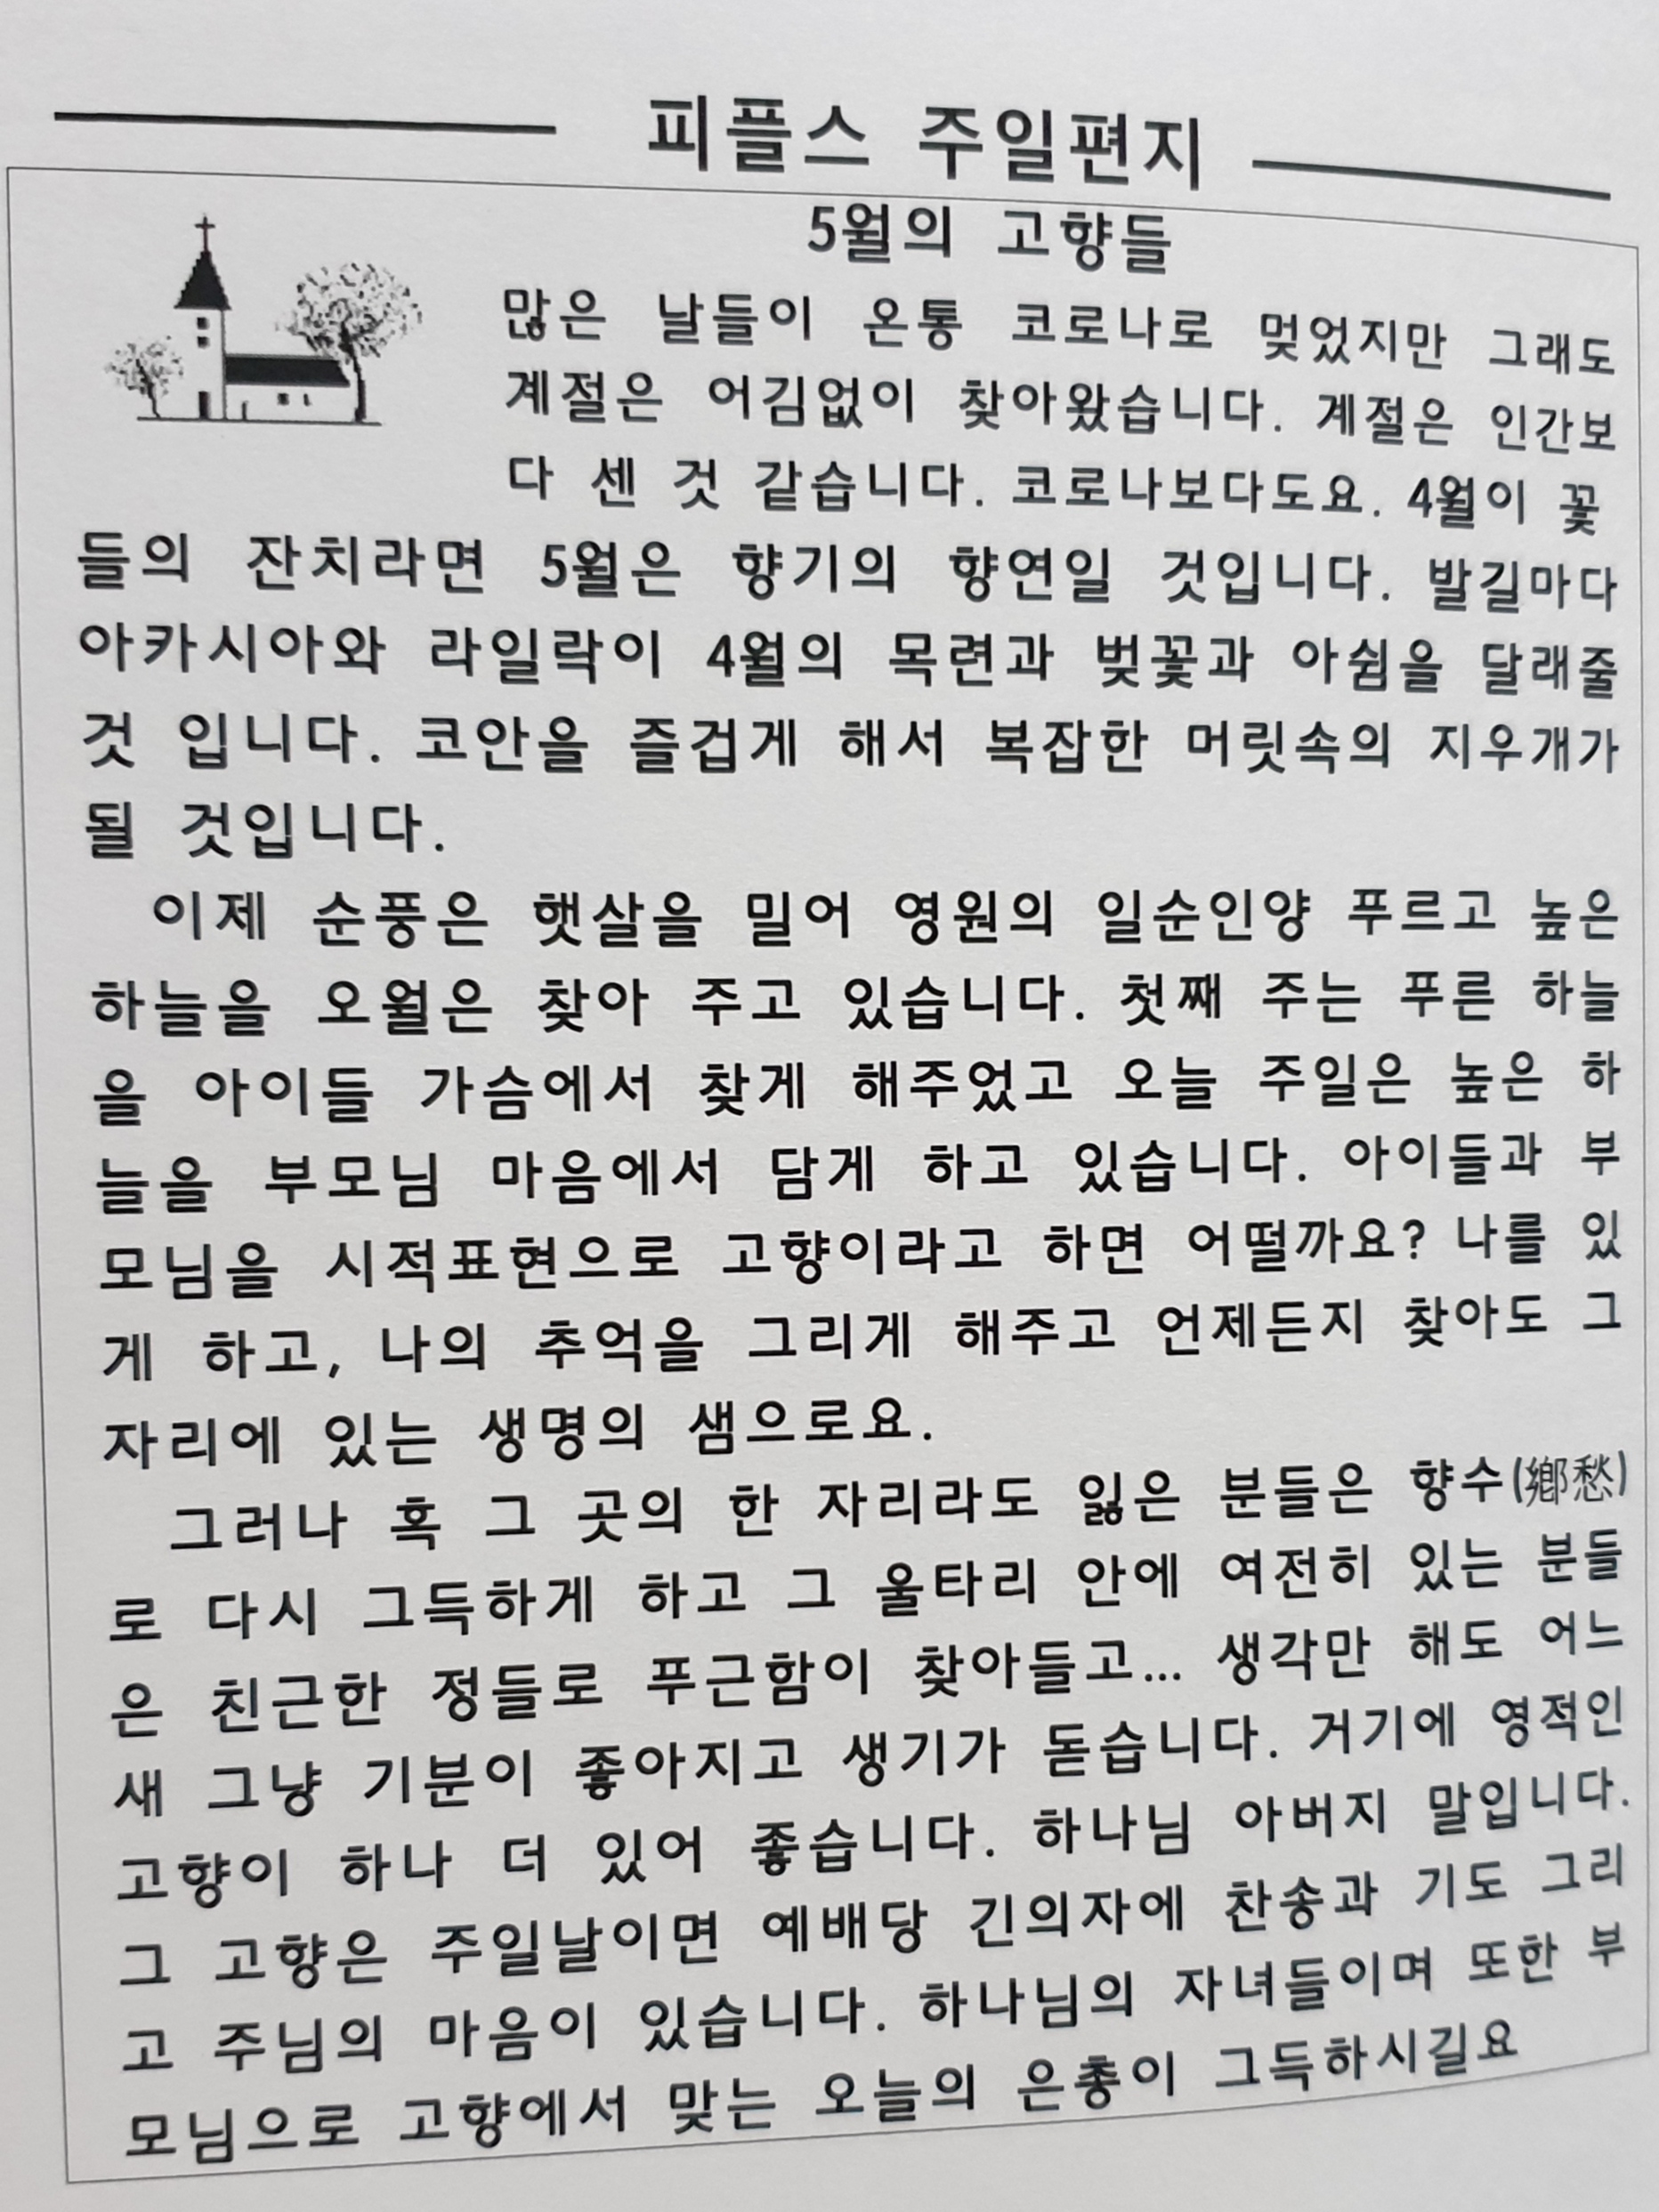 피플스 주일편지
5월의 고향들
많은 날들이 온통 코로나로 멎었지만 그래도
계절은 어김없이 찾아왔습니다. 계절은 인간보
다 센 것 같습니다. 코로나보다도요. 4월이 꽃
들의 잔치라면 5월은 향기의 향연일 것입니다. 발길마다
아카시아와 라일락이 4월의 목련과 벚꽃과 아쉼을 달래줄
것 입니다. 코안을 즐겁게 해서 복잡한 머릿속의 지우개가
될 것입니다.
이제 순풍은 햇살을 밀어 영원의 일순인양 푸르고 높은
하늘을 오월은 찾아 주고 있습니다. 첫째 주는 푸른 하늘
을 아이들 가슴에서 찾게 해주었고 오늘 주일은 높은 하
늘을 부모님 마음에서 담게 하고 있습니다. 아이들과 부
모님을 시적표현으로 고향이라고 하면 어떨까요? 나를 있
게 하고, 나의 추억을 그리게 해주고 언제든지 찾아도 그
자리에 있는 생명의 샘으로요.
그러나 혹 그 곳의 한 자리라도 잃은 분들은 향수(鄕愁)
로 다시 그득하게 하고 그 울타리 안에 여전히 있는 분들
은 친근한 정들로 푸근함이 찾아들고... 생각만 해도 어느
새 그냥 기분이 좋아지고 생기가 돋습니다. 거기에 영적인
고향이 하나 더 있어 좋습니다. 하나님 아버지 말입니다.
그 고향은 주일날이면 예배당 긴의자에 찬송과 기도 그리
고 주님의 마음이 있습니다. 하나님의 자녀들이며 또한 부
모님으로 고향에서 맞는 오늘의 은총이 그득하시길요